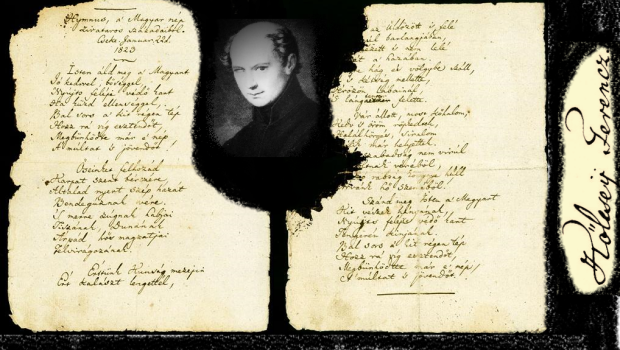 Hymnus, a' Magyar nép
zivataros századaiból.
Cseke, Január. 22d.
1823
Isten áldd meg a' Magyart
Jó kedvvel, bőséggel,
Nyújts feléje védő kart
Ha küzd ellenséggel,
Bal sors a' kit régen tép
Hozz rá víg esztendőt,
Megbünhödte már a' nép
A' múltat 's jövendőt!
Őseinket felhozád
Kárpát szent bérczére,
Általad nyert szép hazát
Bendegúznak vére.
'S merre zúgnak habjai
Tiszának, Dunának
Árpád hős magzatjai
Felvirágozának.
Értünk Kunság mezein
Ért kalászt lengettél,
az üldözött 's felé
barlangjában,
'S nem lelé
a' hazában.
és völgybe száll,
's kétség mellette,
Vérözön lábainál
'S lángtenger felette.
Vár állott, most kőhalom,
Kedv 's öröm röpkedtek,
Halálhörgés, siralom
már helyettek.
szabadság nem virúl
véréből,
rabság
hő szeméből!
Szánd meg Isten a' Magyart
Kit vészek hányának,
Nyújts feléje védő kart
Tengerén kínjának.
Bal sors a' kit régen tép
Hozz rá víg esztendőt,
Megbünhödte már e' nép
A' múltat 's jövendőt!
Kölcsey Ferencz